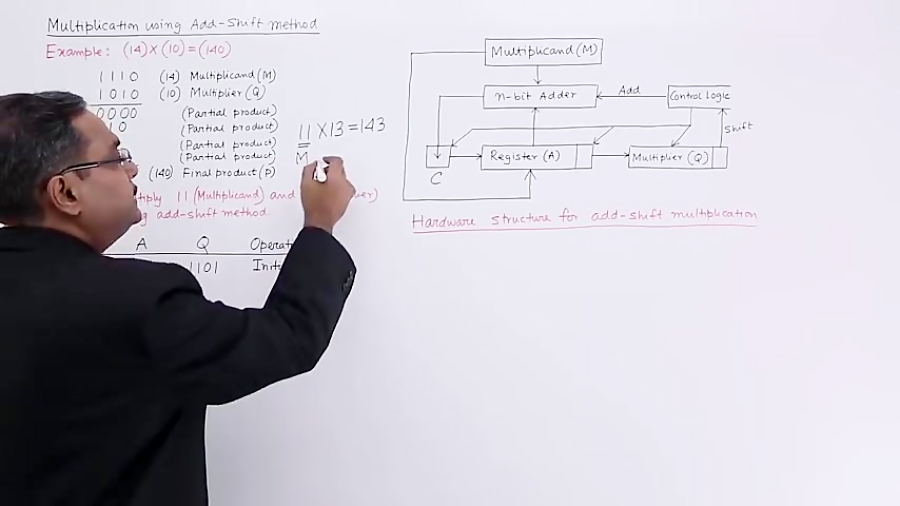 Multiplication using Add-Shift method
Example: (14) × (10) = (140)
1110 (14) Multiplicand (M)
1010 (10) Multiplier (Q)
0000 (Partial product)
10 (Partial product)
(Partial product)
(Partial product)
(140) Final product (P)
11 × 13 = 143
M
11 (Multiplicand) and
add-shift method.
A Q
1101
Multiplicand (M)
n-bit Adder
Add
Control Logic
Shift
C
Register (A)
Multiplier (Q)
Hardware structure for add-shift multiplication